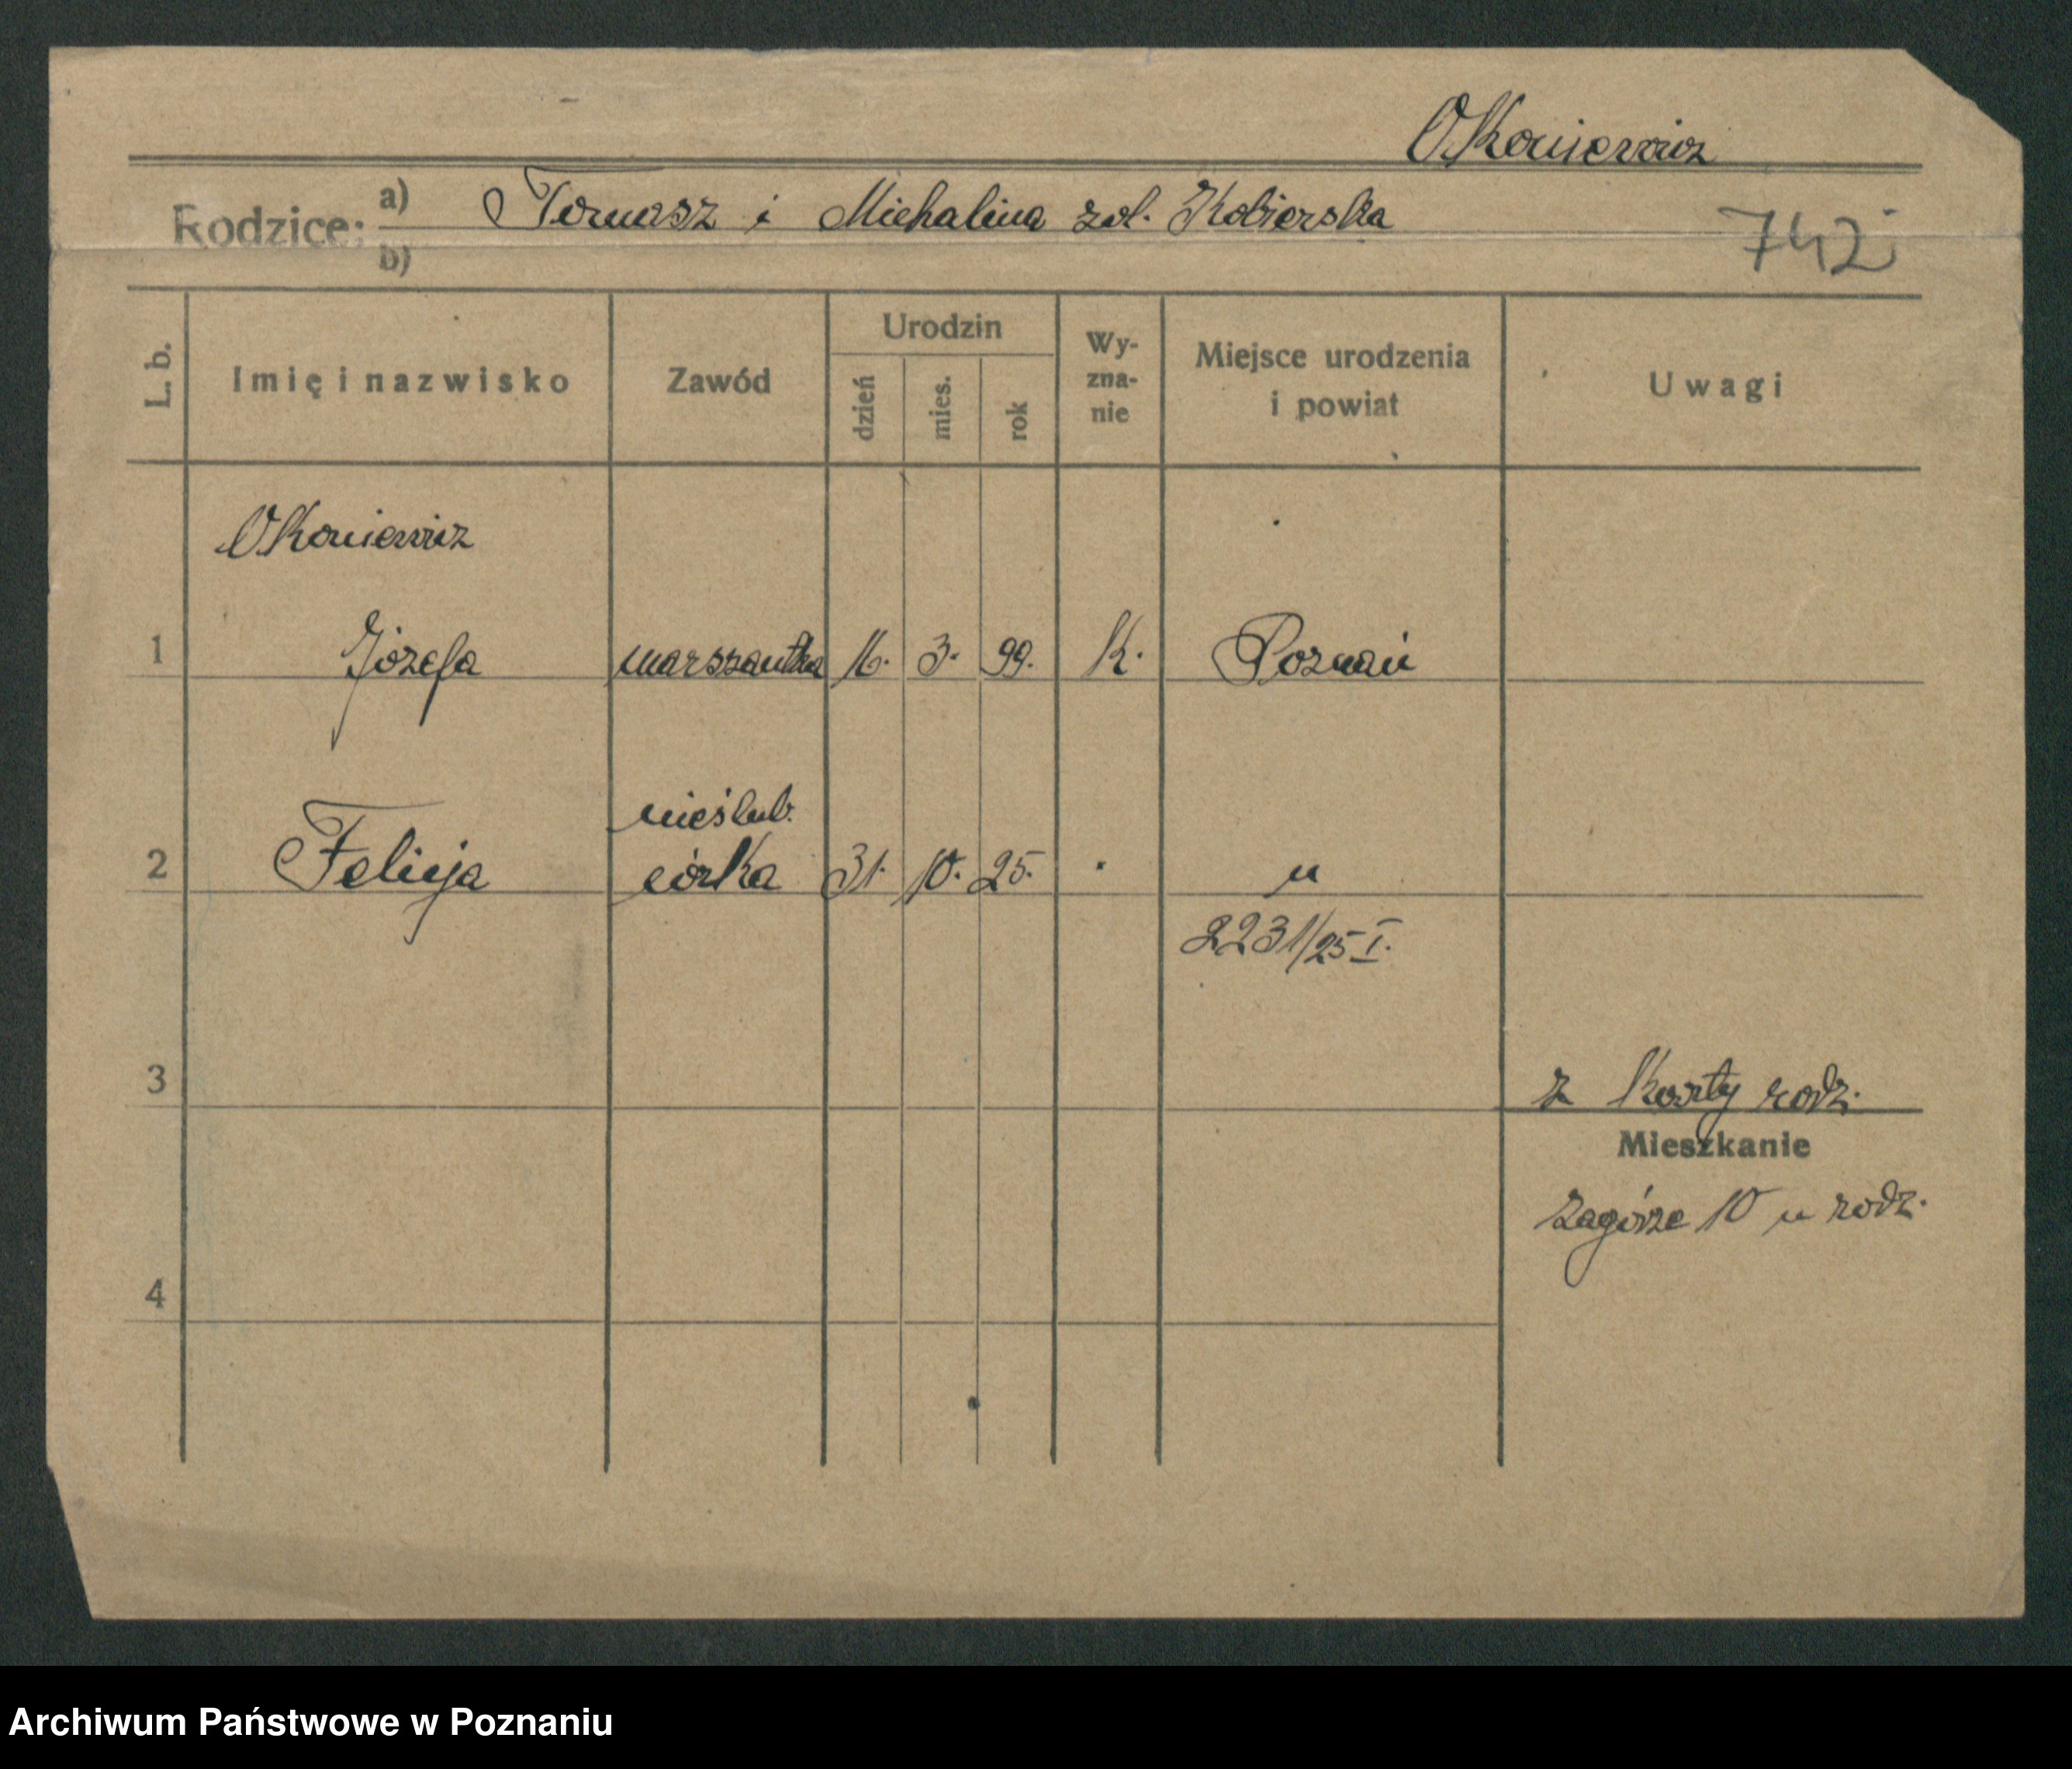 Okoniewicz
Rodzice: a) Tomasz i Michalina zd. Kobierska
b)
742
L. b. Imię i nazwisko Zawód Urodzin dzień mies. rok Wy-zna-nie Miejsce urodzenia i powiat Uwagi
Okoniewicz
1 Józefa 16. 3. 99. K. Poznań
nieślub.
2 Felicja córka 31. 10. 25. " u
2231/25 I.
3 z Karty rodz.
Mieszkanie
Zagórze 10 u rodz.
4
Archiwum Państwowe w Poznaniu